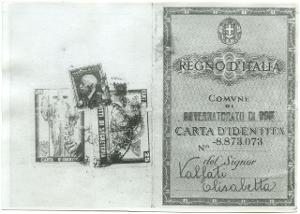 REGNO D'ITALIA
COMVNE
DI
GOVERNATORATO DI
CARTA D'IDENTITÀ
N° -8.873.073
del Signor
Valfati
Elisabetta
CARTA D'IDENT